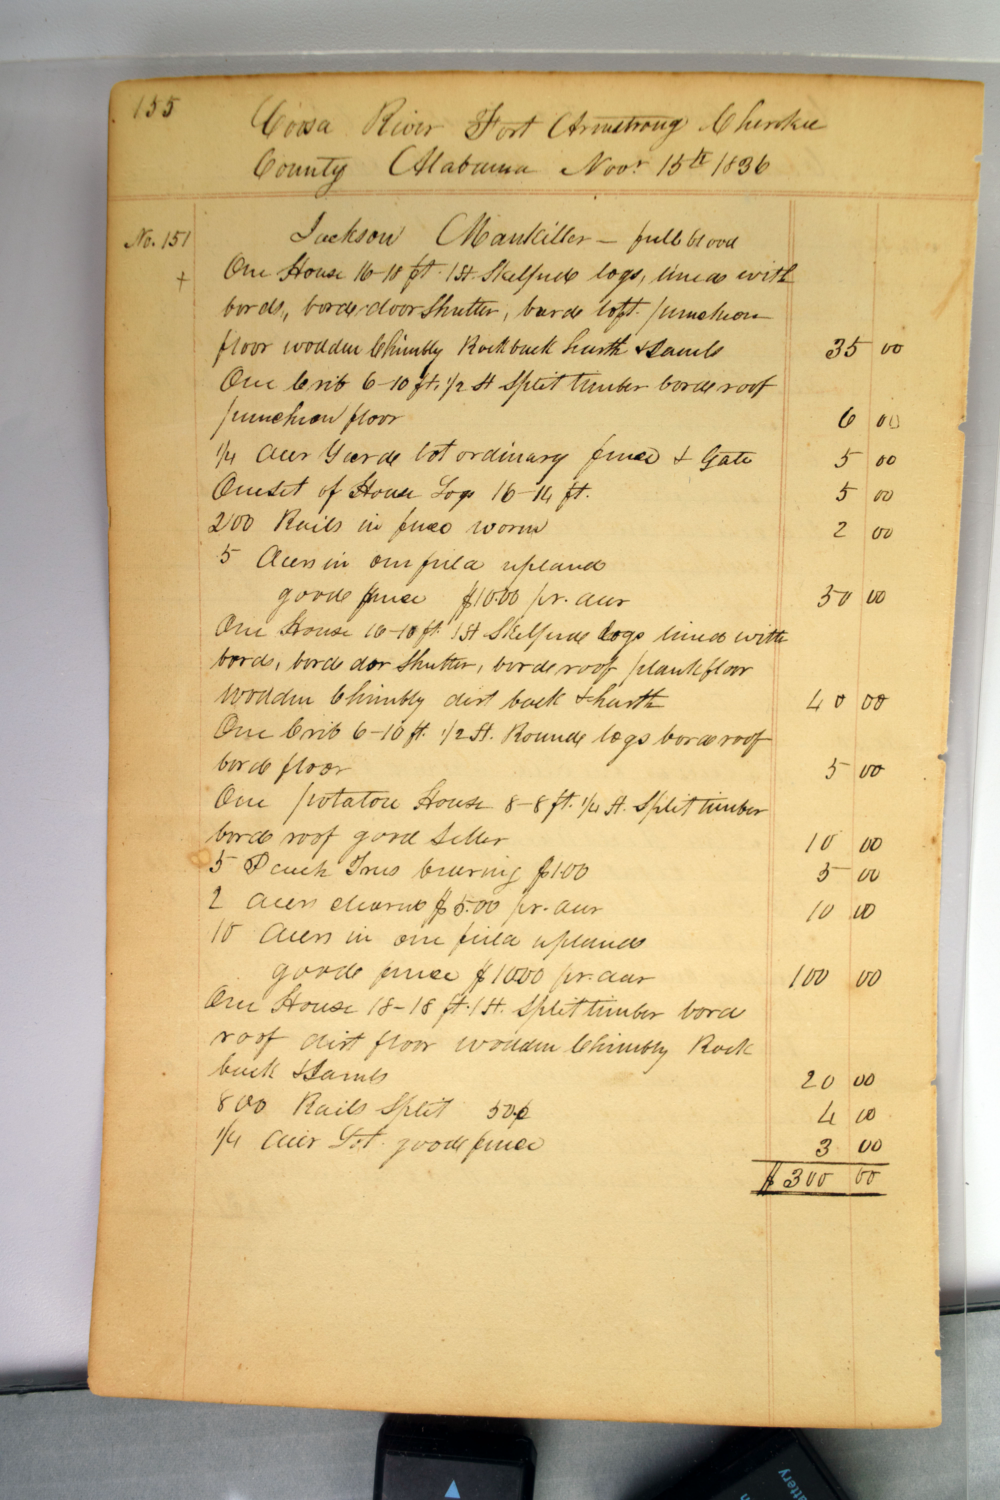 155
Coosa River Fort Armstrong Cherokee
County Alabama Novr. 15th 1836
No. 151
Jackson Mankiller – full blood
+
One House 16–18 ft. 1 St. Skelped logs, lined with
bords, borde door Shutter, borde loft. puncheon
floor wodden Chimbly Rock back harth & Jambs 35 00
One Crib 6–10 ft. 1/2 St Split timber borde roof
puncheon floor 6 00
1/4 Acer Yarde lot ordinary fence & Gate 5 00
One set of House Logs 16–14 ft. 5 00
200 Rails in fence worm 2 00
5 Acers in one field upland
goode fence $10.00 pr. acer 50 00
One House 16–18 ft. 1 St Skelped logs lined with
bords, borde dor Shutter, borde roof plank floor
wodden Chimbly dirt back & harth 40 00
One Crib 6–10 ft. 1/2 St. Rounde logs borde roof
borde floor 5 00
One potatoe House 8–8 ft. 1/4 St. Split timber
borde roof good Seller 10 00
5 Peach Trees bearing $1.00 5 00
2 Acers cleared $5.00 pr. acer 10 00
10 Acers in one field uplands
goode fence $10.00 pr. acer 100 00
One House 18–18 ft. 1 St. Split timber bord
roof dirt floor wodden Chimbly Rock
back & Jambs 20 00
800 Rails Split 50¢ 4 00
1/4 Acer Lot. goode fence 3 00
$ 300 00